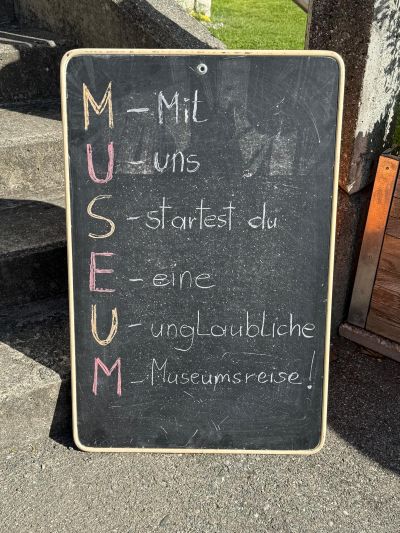 M - Mit
U - uns
S - startest du
E - eine
U - unglaubliche
M - Museumsreise!